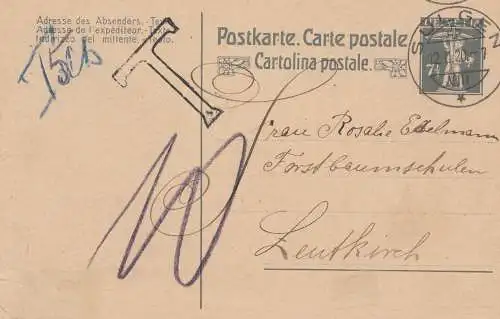 Adresse des Absenders. - Text
Adresse de l'expéditeur. - Texte
Indirizzo del mittente. - Testo.
Postkarte. Carte postale
Cartolina postale.
SULGEN
7½
T
10
Frau Rosalie Edelmann
Forstbaumschulen
Leutkirch